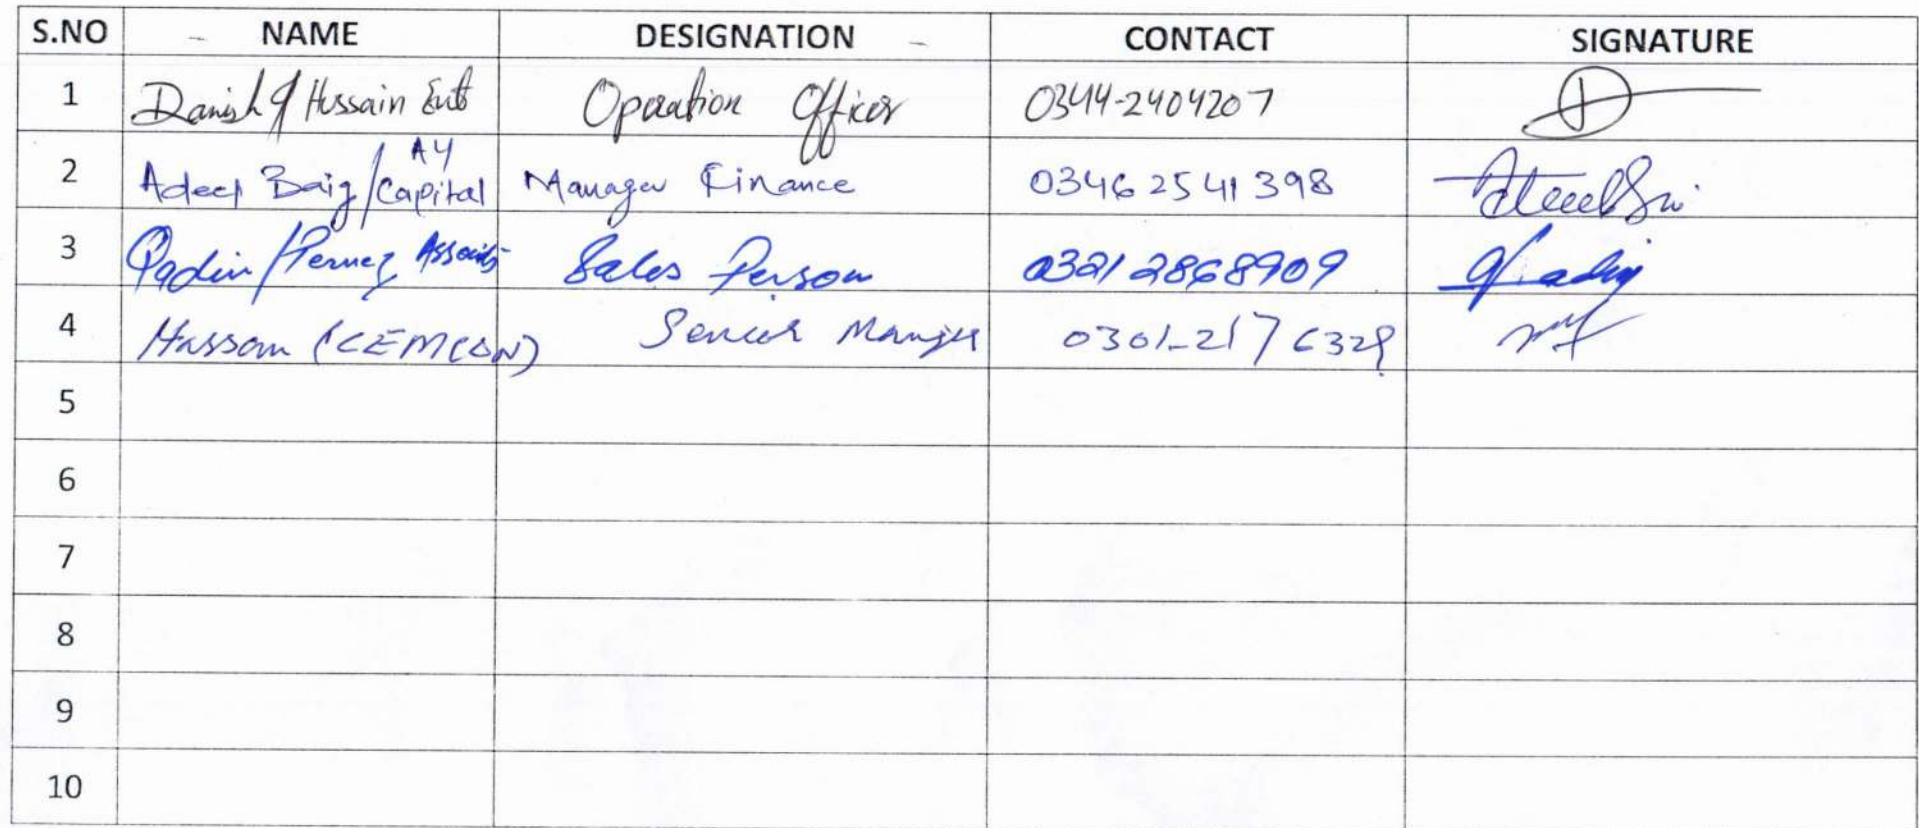 S.NO NAME DESIGNATION CONTACT SIGNATURE
1 Danish / Hussain Ent Operation Officer 0344-2404207
AY
2 Adeel Baig / Capital Manager Finance 03462541398
3 Qadir / Pervez Associats Sales Person 03212868909
4 Hassan (CEMCON) Senior Manager 0301-2176329
5
6
7
8
9
10